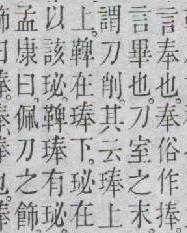 言奉也奉俗作捧。
言畢也刀室之末
謂刀削其云琫上
上。鞞在琫下。珌在
以該珌鞞琫有珌。
孟康曰。佩刀之飾